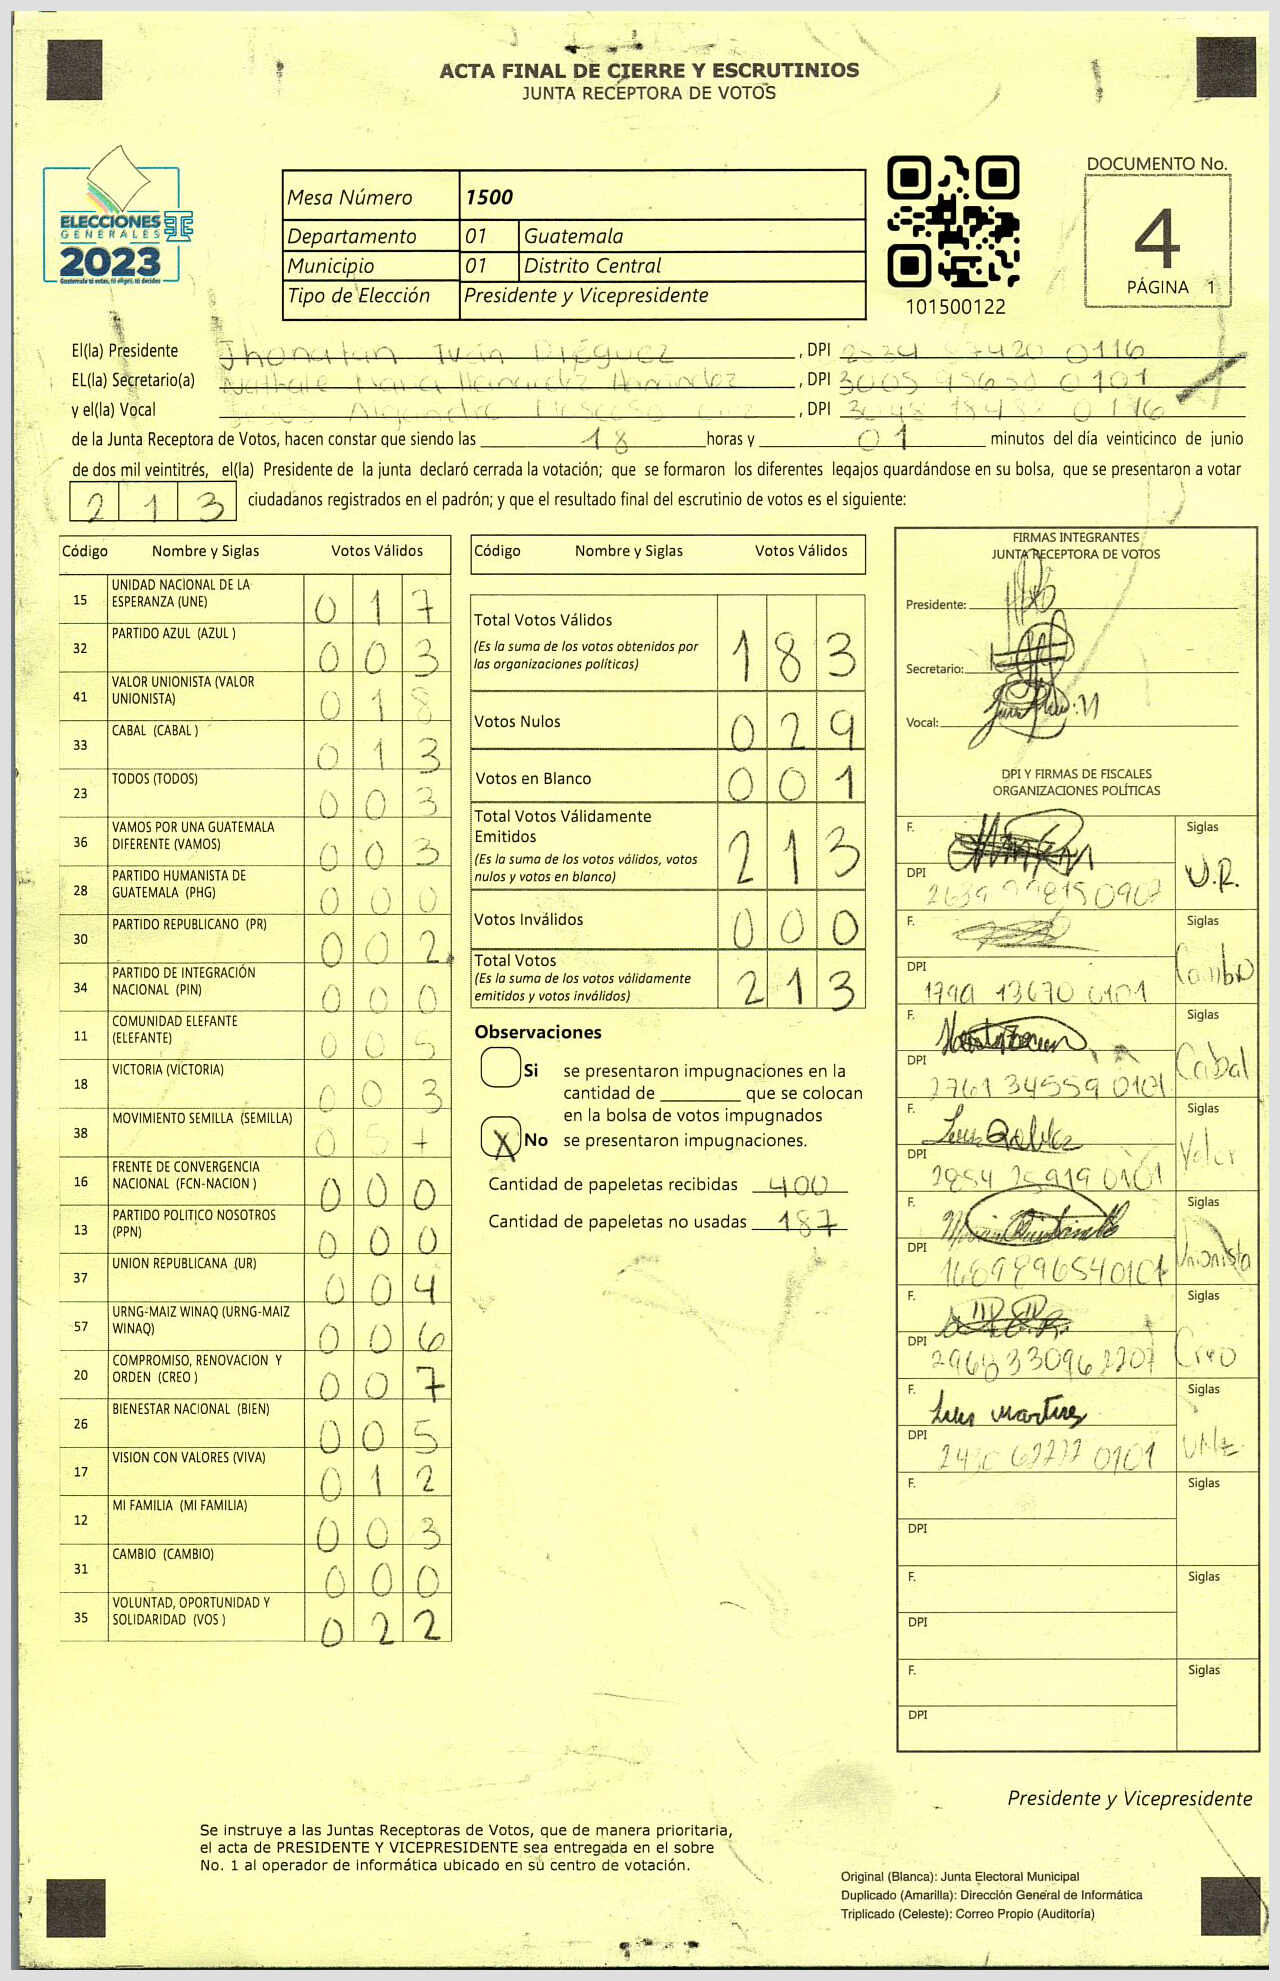 ACTA FINAL DE CIERRE Y ESCRUTINIOS
JUNTA RECEPTORA DE VOTOS
ELECCIONES
GENERALES
2023
Guatemala tú votas, tú eliges, tú decides
Mesa Número 1500
Departamento 01 Guatemala
Municipio 01 Distrito Central
Tipo de Elección Presidente y Vicepresidente
101500122
DOCUMENTO No.
4
PÁGINA 1
El(la) Presidente Jhonatan Iván Diéguez , DPI 0116
EL(la) Secretario(a) Hernández , DPI 3005 0101
y el(la) Vocal Jesús Alejandro , DPI
de la Junta Receptora de Votos, hacen constar que siendo las 18 horas y 01 minutos del día veinticinco de junio
de dos mil veintitrés, el(la) Presidente de la junta declaró cerrada la votación; que se formaron los diferentes legajos guardándose en su bolsa, que se presentaron a votar
213 ciudadanos registrados en el padrón; y que el resultado final del escrutinio de votos es el siguiente:
Código Nombre y Siglas Votos Válidos
15 UNIDAD NACIONAL DE LA
ESPERANZA (UNE) 017
32 PARTIDO AZUL (AZUL ) 003
41 VALOR UNIONISTA (VALOR
UNIONISTA) 018
33 CABAL (CABAL ) 013
23 TODOS (TODOS) 003
36 VAMOS POR UNA GUATEMALA
DIFERENTE (VAMOS) 003
28 PARTIDO HUMANISTA DE
GUATEMALA (PHG) 000
30 PARTIDO REPUBLICANO (PR) 002
34 PARTIDO DE INTEGRACIÓN
NACIONAL (PIN) 000
11 COMUNIDAD ELEFANTE
(ELEFANTE) 005
18 VICTORIA (VICTORIA) 003
38 MOVIMIENTO SEMILLA (SEMILLA) 057
16 FRENTE DE CONVERGENCIA
NACIONAL (FCN-NACION ) 000
13 PARTIDO POLITICO NOSOTROS
(PPN) 000
37 UNION REPUBLICANA (UR) 004
57 URNG-MAIZ WINAQ (URNG-MAIZ
WINAQ) 006
20 COMPROMISO, RENOVACION Y
ORDEN (CREO ) 007
26 BIENESTAR NACIONAL (BIEN) 005
17 VISION CON VALORES (VIVA) 012
12 MI FAMILIA (MI FAMILIA) 003
31 CAMBIO (CAMBIO) 000
35 VOLUNTAD, OPORTUNIDAD Y
SOLIDARIDAD (VOS ) 022
Código Nombre y Siglas Votos Válidos
Total Votos Válidos 183
(Es la suma de los votos obtenidos por
las organizaciones políticas)
Votos Nulos 029
Votos en Blanco 001
Total Votos Válidamente
Emitidos 213
(Es la suma de los votos válidos, votos
nulos y votos en blanco)
Votos Inválidos 000
Total Votos 213
(Es la suma de los votos válidamente
emitidos y votos inválidos)
Observaciones
Si se presentaron impugnaciones en la
cantidad de ________ que se colocan
en la bolsa de votos impugnados
X No se presentaron impugnaciones.
Cantidad de papeletas recibidas 400
Cantidad de papeletas no usadas 187
FIRMAS INTEGRANTES
JUNTA RECEPTORA DE VOTOS
Presidente:
Secretario:
Vocal:
DPI Y FIRMAS DE FISCALES
ORGANIZACIONES POLÍTICAS
F. Siglas
DPI 0907 U.R.
F. Siglas
DPI 13670 0101 Cambio
F. Siglas
DPI 2761 34559 0101 Cabal
F. Siglas
DPI 2854 25919 0101 Valor
F. Siglas
DPI 1689 89654 0101 Unionista
F. Siglas
DPI 33096 2207 Creo
F. Luis Martinez Siglas
DPI 0101
F. Siglas
DPI
F. Siglas
DPI
F. Siglas
DPI
Presidente y Vicepresidente
Se instruye a las Juntas Receptoras de Votos, que de manera prioritaria,
el acta de PRESIDENTE Y VICEPRESIDENTE sea entregada en el sobre
No. 1 al operador de informática ubicado en su centro de votación.
Original (Blanca): Junta Electoral Municipal
Duplicado (Amarilla): Dirección General de Informática
Triplicado (Celeste): Correo Propio (Auditoría)